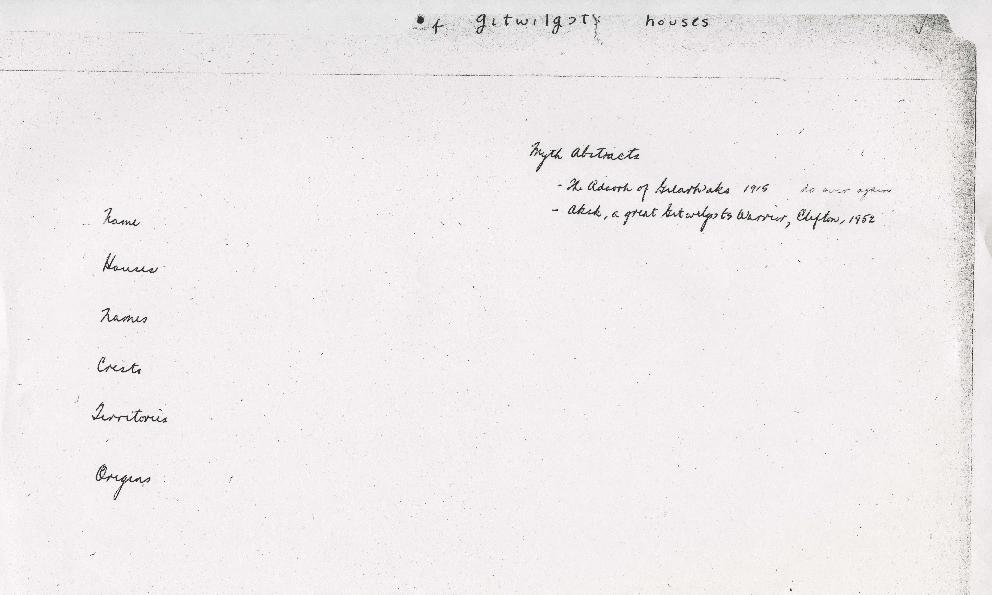 of gitwilgoty houses
Myth Abstracts
- The Adaorh of 1915 do over again
- , a great Warrior, Clifton, 1952
Name
Houses
Names
Crests
Territories
Origins